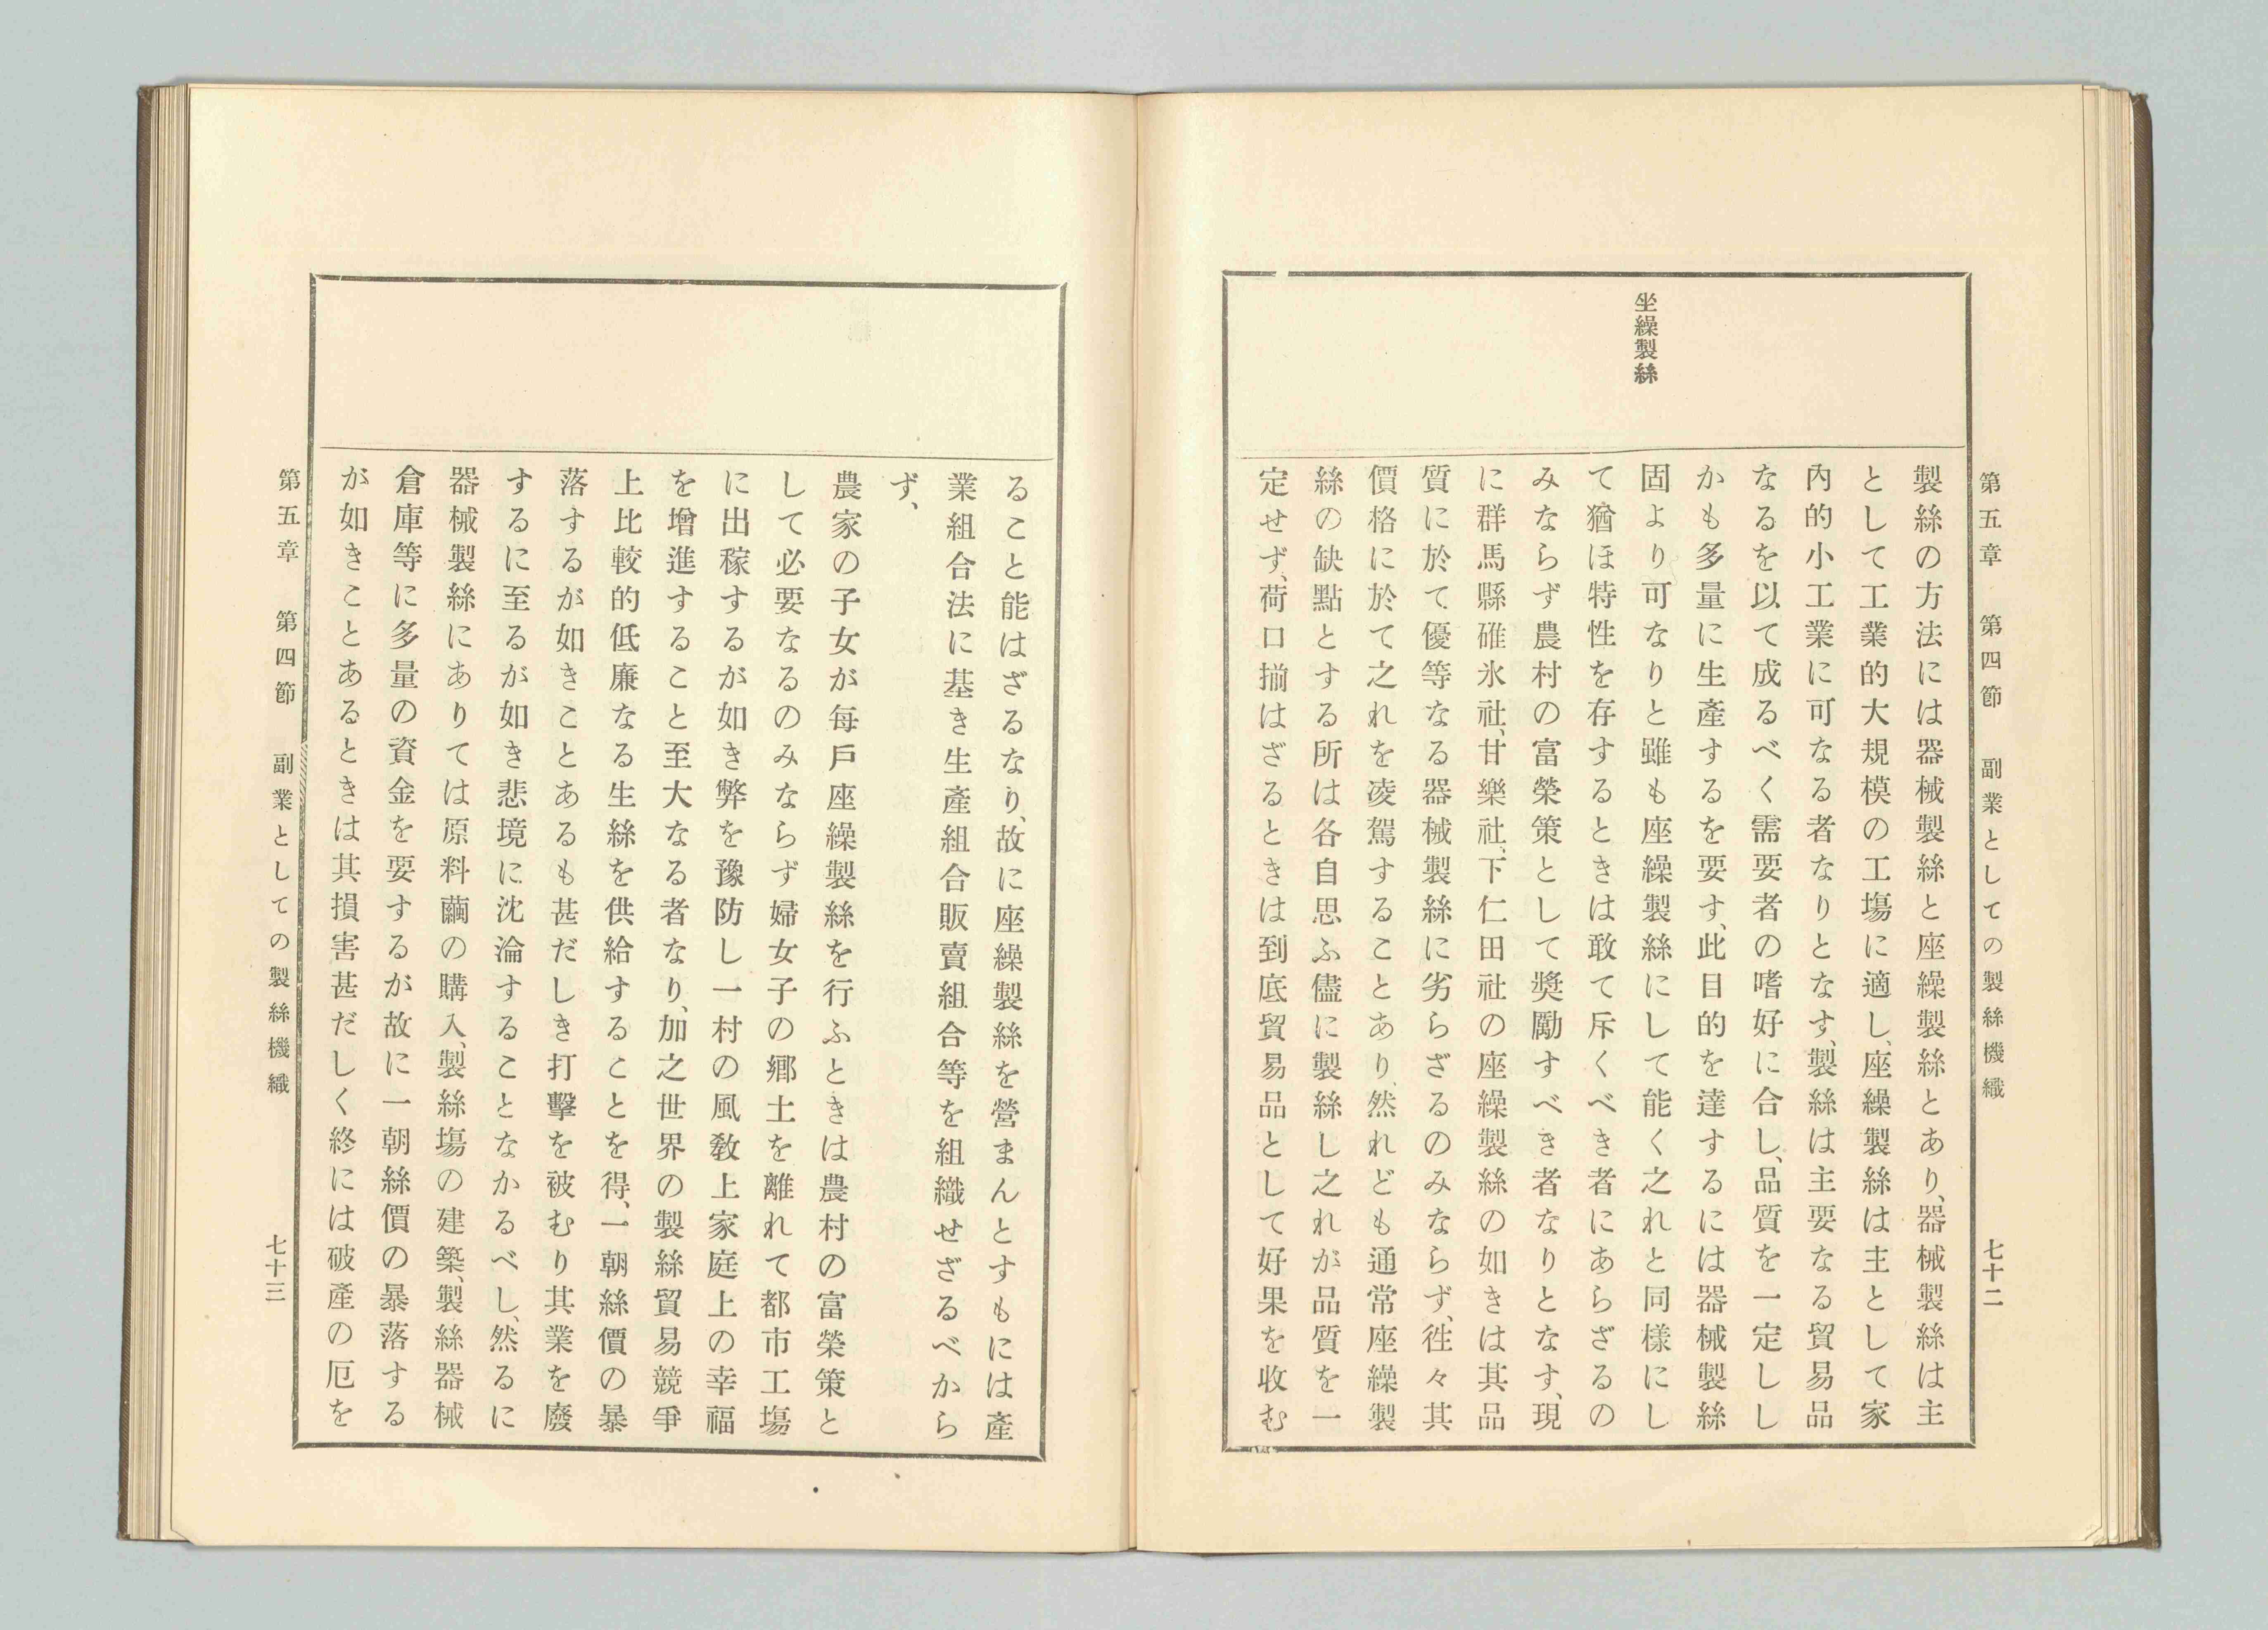 第五章　第四節　副業としての製絲機織　七十二
坐繰製絲
製絲の方法には器械製絲と座繰製絲とあり、器械製絲は主
として工業的大規模の工塲に適し、座繰製絲は主として家
內的小工業に可なる者なりとなす、製絲は主要なる貿易品
なるを以て成るべく需要者の嗜好に合し、品質を一定しし
かも多量に生產するを要す、此目的を達するには器械製絲
固より可なりと雖も座繰製絲にして能く之れと同樣にし
て猶ほ特性を存するときは敢て斥くべき者にあらざるの
みならず農村の富榮策として奬勵すべき者なりとなす、現
に群馬縣碓氷社、甘樂社、下仁田社の座繰製絲の如きは其品
質に於て優等なる器械製絲に劣らざるのみならず、徃々其
價格に於て之れを凌駕することあり、然れども通常座繰製
絲の缺點とする所は各自思ふ儘に製絲し之れが品質を一
定せず、荷口揃はざるときは到底貿易品として好果を收む
ること能はざるなり、故に座繰製絲を營まんとすもには產
業組合法に基き生產組合販賣組合等を組織せざるべから
ず、
農家の子女が每戶座繰製絲を行ふときは農村の富榮策と
して必要なるのみならず婦女子の鄕土を離れて都市工塲
に出稼するが如き弊を豫防し一村の風敎上家庭上の幸福
を增進すること至大なる者なり、加之世界の製絲貿易競爭
上比較的低廉なる生絲を供給することを得、一朝絲價の暴
落するが如きことあるも甚だしき打擊を被むり其業を廢
するに至るが如き悲境に沈淪することなかるべし、然るに
器械製絲にありては原料繭の購入、製絲塲の建築、製絲器械
倉庫等に多量の資金を要するが故に一朝絲價の暴落する
が如きことあるときは其損害甚だしく終には破產の厄を
第五章　第四節　副業としての製絲機織　七十三